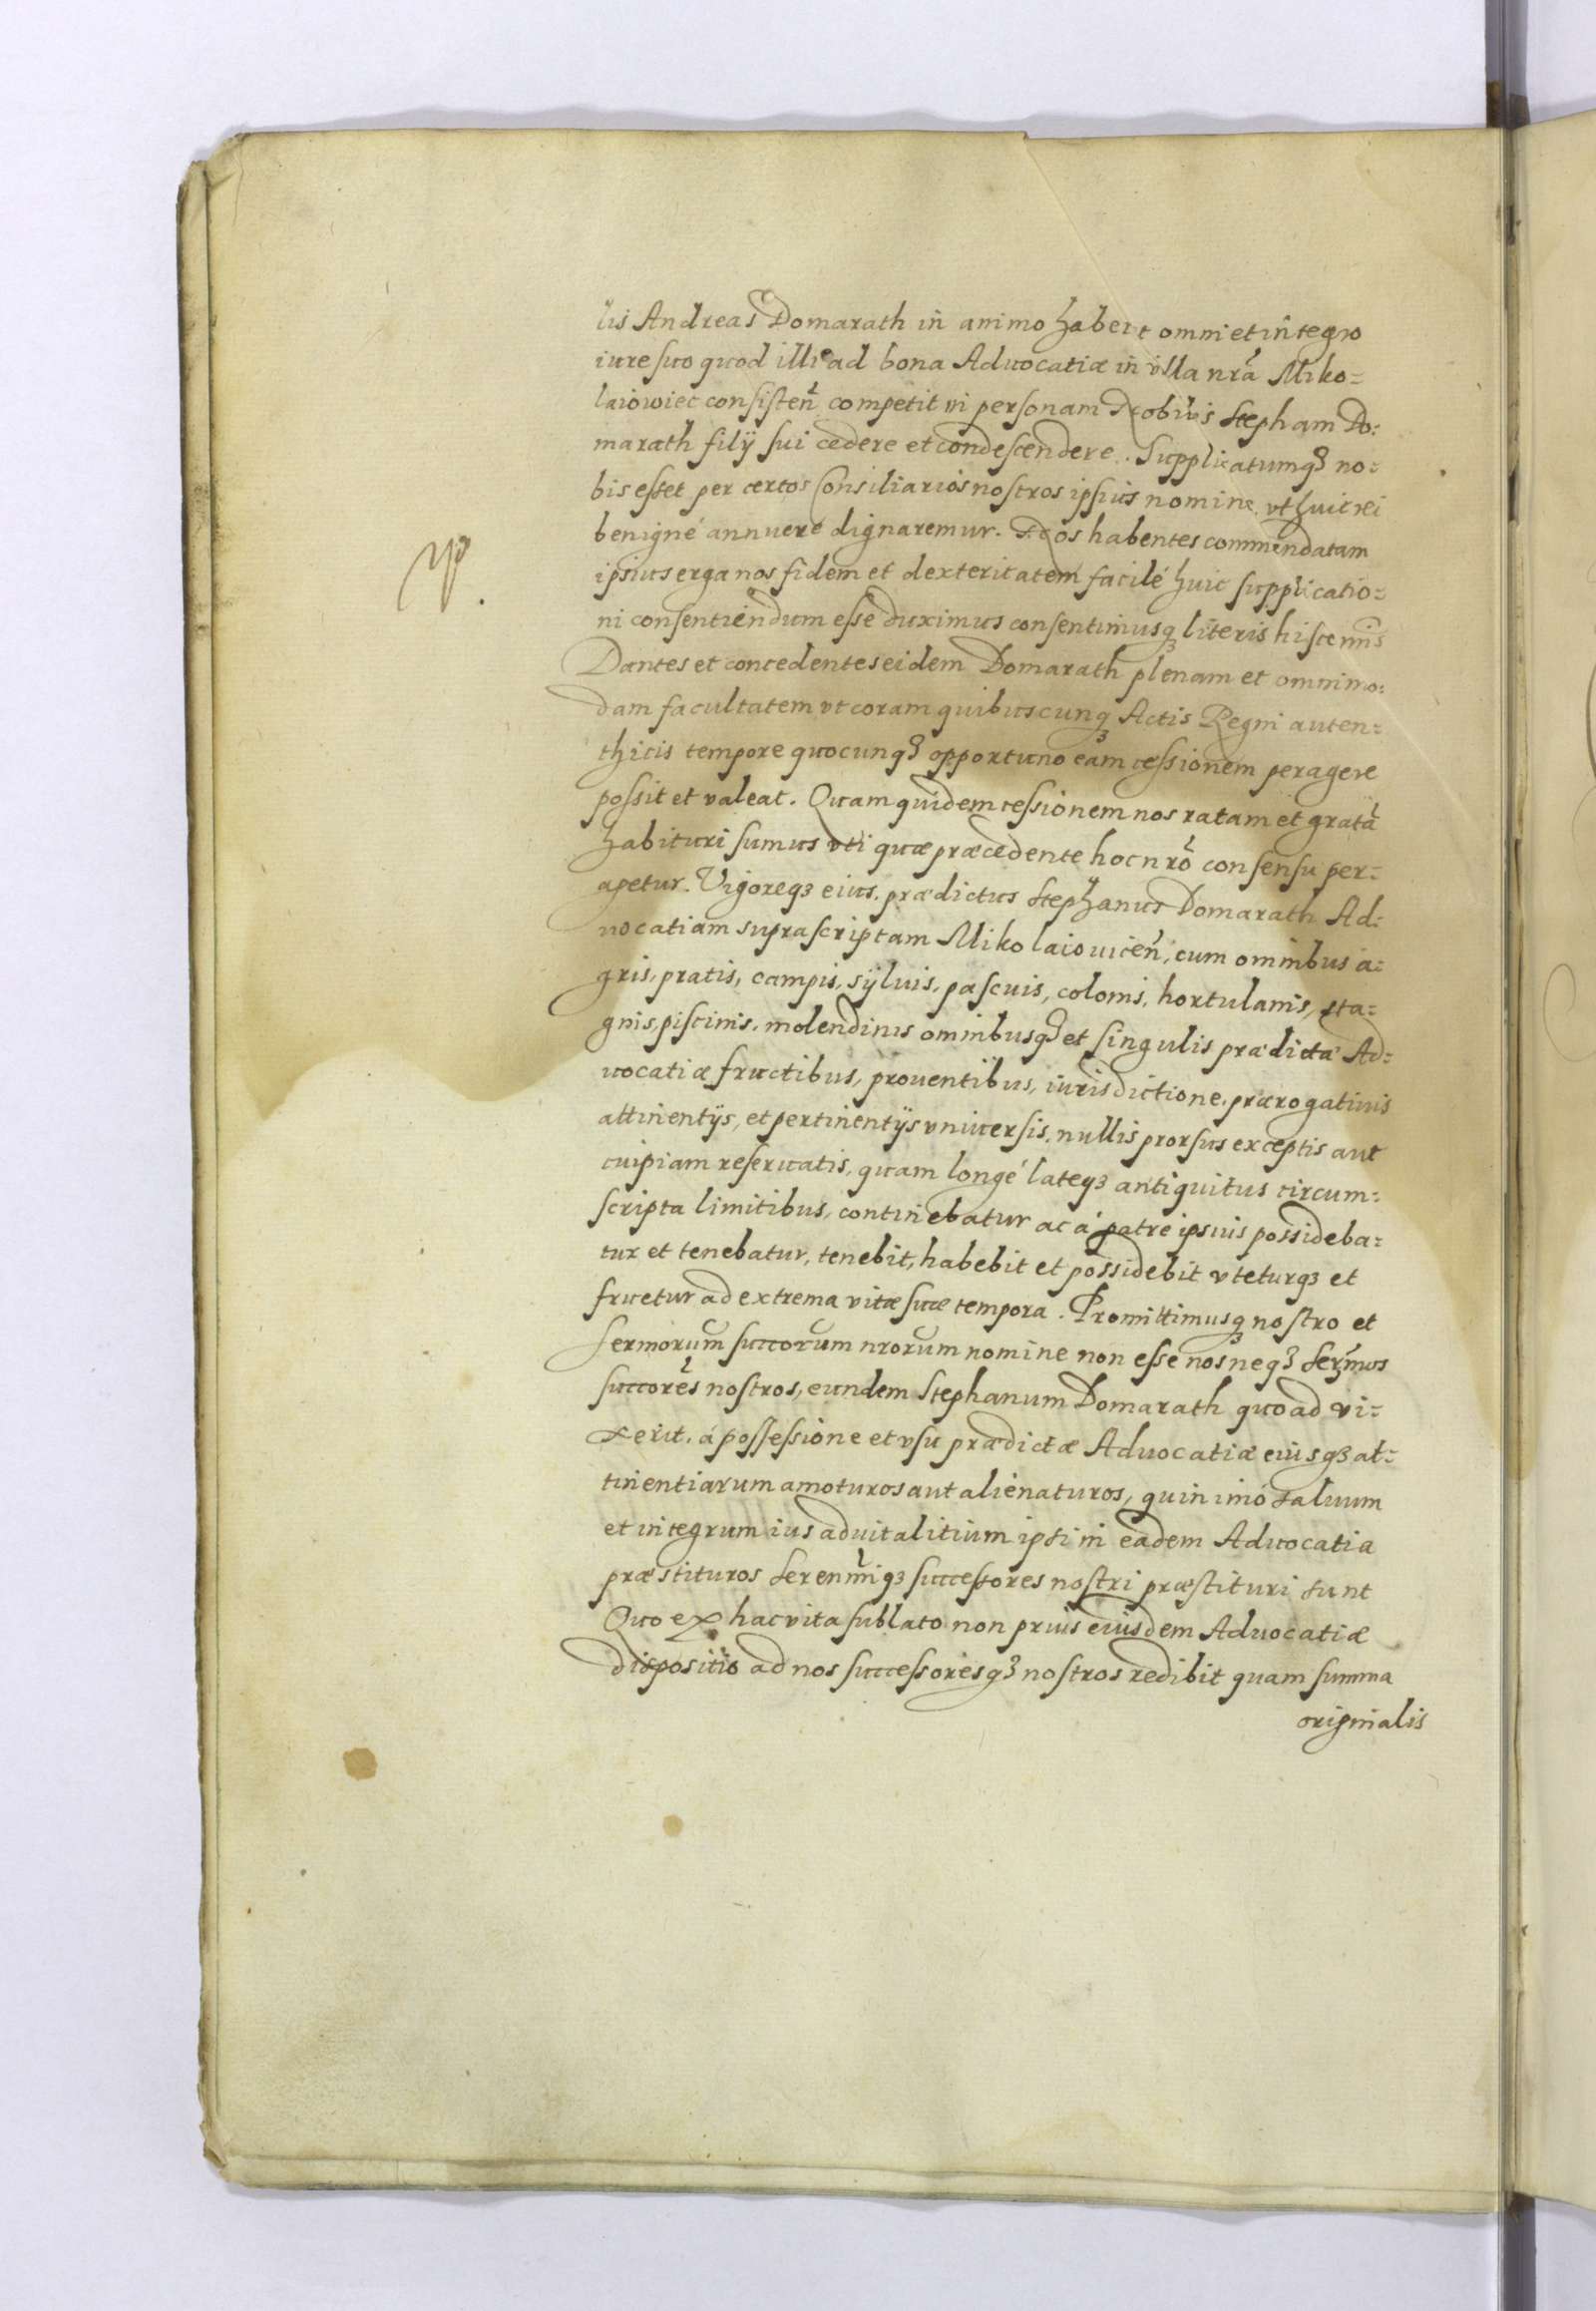 lis Andreas Domarath in animo haberet omni et integro
iure suo quod illi ad bona Aduocatiæ in villa nrã Miko=
laiowiec consisteñ competit in personam Nobilis Stephani Do=
marath filÿ sui cedere et condescendere. Supplicatumqȝ no=
bis esset per certos Consiliarios nostros ipsius nomine, vt huic rei
benignè annuere dignaremur. Nos habentes commendatam
ipsius erga nos fidem et dexteritatem facilè huic supplicatio=
ni consentiendum esse duximus consentimusqȝ literis hisce nris
Dantes et concedentes eidem Domarath plenam et omnimo=
dam facultatem vt coram quibuscunqȝ Actis Regni auten=
thicis tempore quocunqȝ opportuno eam cessionem peragere
possit et valeat. Quam quidem cessionem nos ratam et gratã
habituri sumus vti quæ præcedente hoc nrõ consensu per=
agetur. Vigoreqȝ eius, prædictus Stephanus Domarath Ad=
uocatiam suprascriptam Mikolaiouiceñ, cum omnibus a=
gris, pratis, campis, sÿluis, pascuis, colonis, hortulanis, sta=
gnis, piscinis, molendinis omnibusqȝ et singulis prædictæ Ad=
uocatiæ fructibus, prouentibus, iurisdictione, prærogatiuis
attinentÿs, et pertinentÿs vniuersis, nullis prorsus exceptis aut
cuipiam reseruatis, quam longè lateqȝ antiquitus circum=
scripta limitibus, continebatur ac à patre ipsius possideba=
tur et tenebatur, tenebit, habebit et possidebit vteturqȝ et
fruetur ad extrema vitæ suæ tempora. Promittimusqȝ nostro et
sermorum succorum nrorum nomine non esse nos neqȝ Serm̃os
succorẽs nostros, eundem Stephanum Domarath quoad vi=
xerit, à possessione et vsu prædictæ Aduocatiæ eiusqȝ at=
tinentiarum amoturos aut alienaturos, quin imò saluum
et integrum ius aduitalitium ipsi in eadem Aduocatia
præstituros Serenm̃iqȝ successores nostri præstituri sunt
Quo ex hac vita sublato non prius eiusdem Aduocatiæ
dispositio ad nos successoresqȝ nostros redibit quam summa
originalis